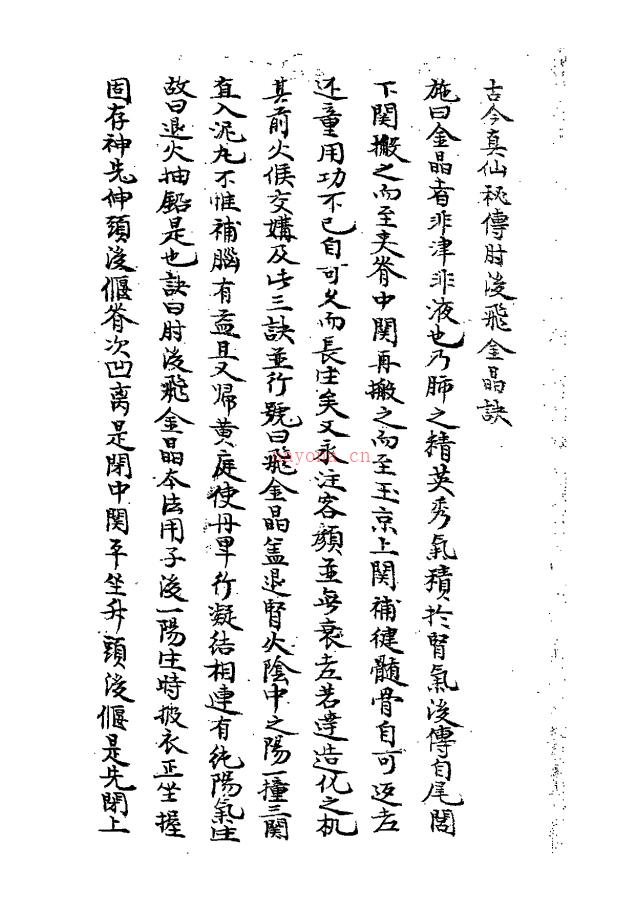 古今真仙秘傳肘後飛金晶訣
施曰金晶者非津非液也乃肺之精英秀氣積於腎氣後傳自尾閭
下関搬之而至夹脊中関再搬之而至玉京上関補健髄骨自可返老
还童用功不已自可久而長生矣又永注容顔並無衰老若達造化之机
其前火候交媾及此三訣並行號曰飛金晶盖退腎火陰中之陽一撞三関
直入泥丸不惟補腦有益且又归黄庭使丹早行凝结相連有纯陽氣生
故曰退火抽鉛是也訣曰肘後飛金晶本法用子後一陽生時披衣正坐握
固存神先伸頭後偃脊次凹离是閉中関平坐升頭後偃是先閉上
nayona.cn